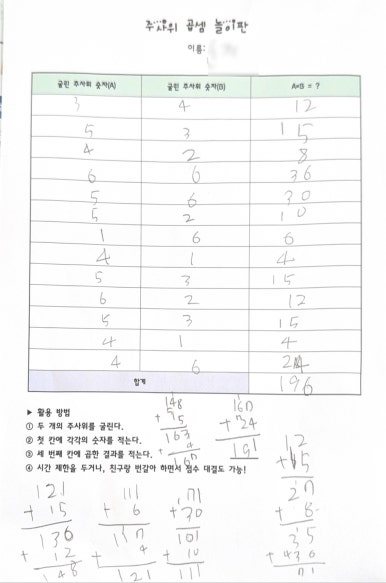 주사위 곱셈 놀이판
이름:
굴린 주사위 숫자(A) 굴린 주사위 숫자(B) A×B = ?
3 4 12
5 3 15
4 2 8
6 6 36
5 6 30
5 2 10
1 6 6
4 1 4
5 3 15
6 2 12
5 3 15
4 1 4
4 6 24
합계 196
▶ 활용 방법
① 두 개의 주사위를 굴린다.
② 첫 칸에 각각의 숫자를 적는다.
③ 세 번째 칸에 곱한 결과를 적는다.
④ 시간 제한을 두거나, 친구랑 번갈아 하면서 점수 대결도 가능!
148
+ 15
163
+ 4
167
167
+ 24
191
12
+ 15
27
+ 8
35
+ 36
71
121
+ 15
136
+ 12
148
111
+ 6
117
+ 4
121
71
+ 30
101
+ 10
111